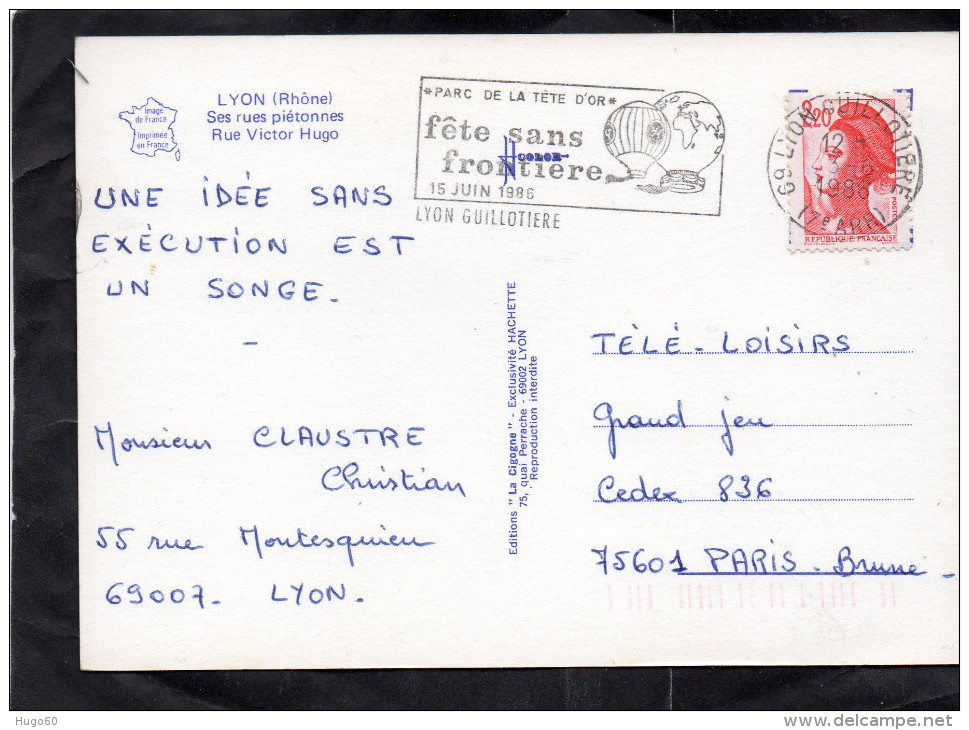 Image
de France
Imprimée
en France
LYON (Rhône)
Ses rues piétonnes
Rue Victor Hugo
*PARC DE LA TÊTE D'OR*
fête sans
COLOR
frontière
15 JUIN 1986
LYON GUILLOTIERE
69 LYON GUILLOTIERE
12
1986
(7e ARR)
2,20
POSTES
REPUBLIQUE FRANÇAISE
UNE IDÉE SANS
EXÈCUTION EST
UN SONGE.
Monsieur CLAUSTRE
Christian
55 rue Montesquieu
69007. LYON.
Editions "La Cigogne" - Exclusivité HACHETTE
75, quai Perrache - 69002 LYON
Reproduction interdite
TÈLÈ-LOISIRS
Grand jeu
Cedex 836
75601 PARIS. Brune
Hugo60
www.delcampe.net